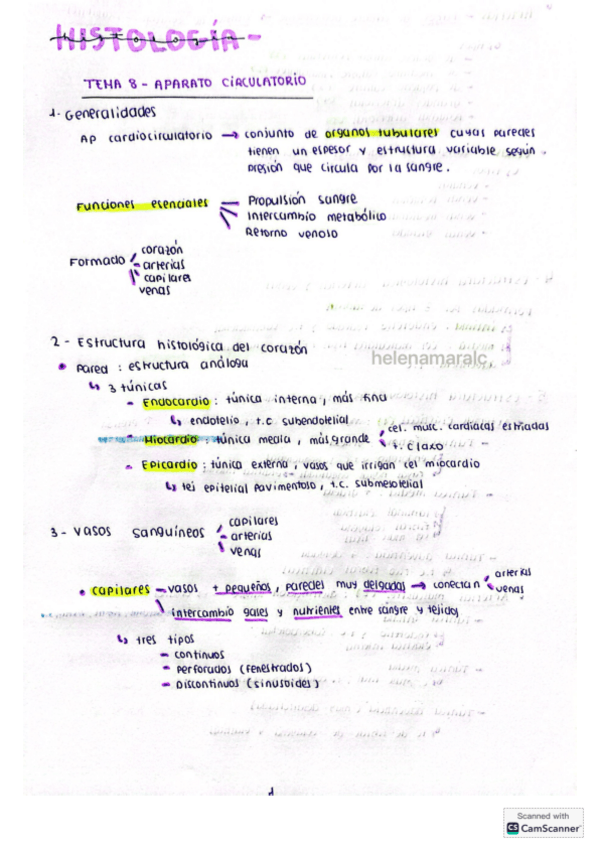 HISTOLOGÍA -
TEMA 8 - APARATO CIRCULATORIO
1- Generalidades
AP cardiocirculatorio → conjunto de organos tubulares cuyas paredes
tienen un espesor y estructura variable según
presión que circula por la sangre.
Funciones esenciales
Propulsión sangre
Intercambio metabólico
Retorno venoso
Formado
corazón
- arterias
capilares
venas
2 - Estructura histológica del corazón
helenamaralc
• Pared : estructura análoga
↳ 3 túnicas
- Endocardio : túnica interna, más fina
↳ endotelio, t.c subendotelial
- Miocardio : túnica media, más grande
cel. musc. cardiacas estriadas
t. c laxo
- Epicardio : túnica externa, vasos que irrigan cel miocardio
↳ tej epitelial pavimentoso, t.c. submesotelial
3 - vasos sanguíneos
capilares
- arterias
venas
• capilares - vasos + pequeños, paredes muy delgadas → conectan
arterias
venas
intercambio gases y nutrientes entre sangre y tejidos
↳ tres tipos
- continuos
- Perforados (fenestrados)
- Discontinuos (sinusoides)
1
Scanned with
CS CamScanner